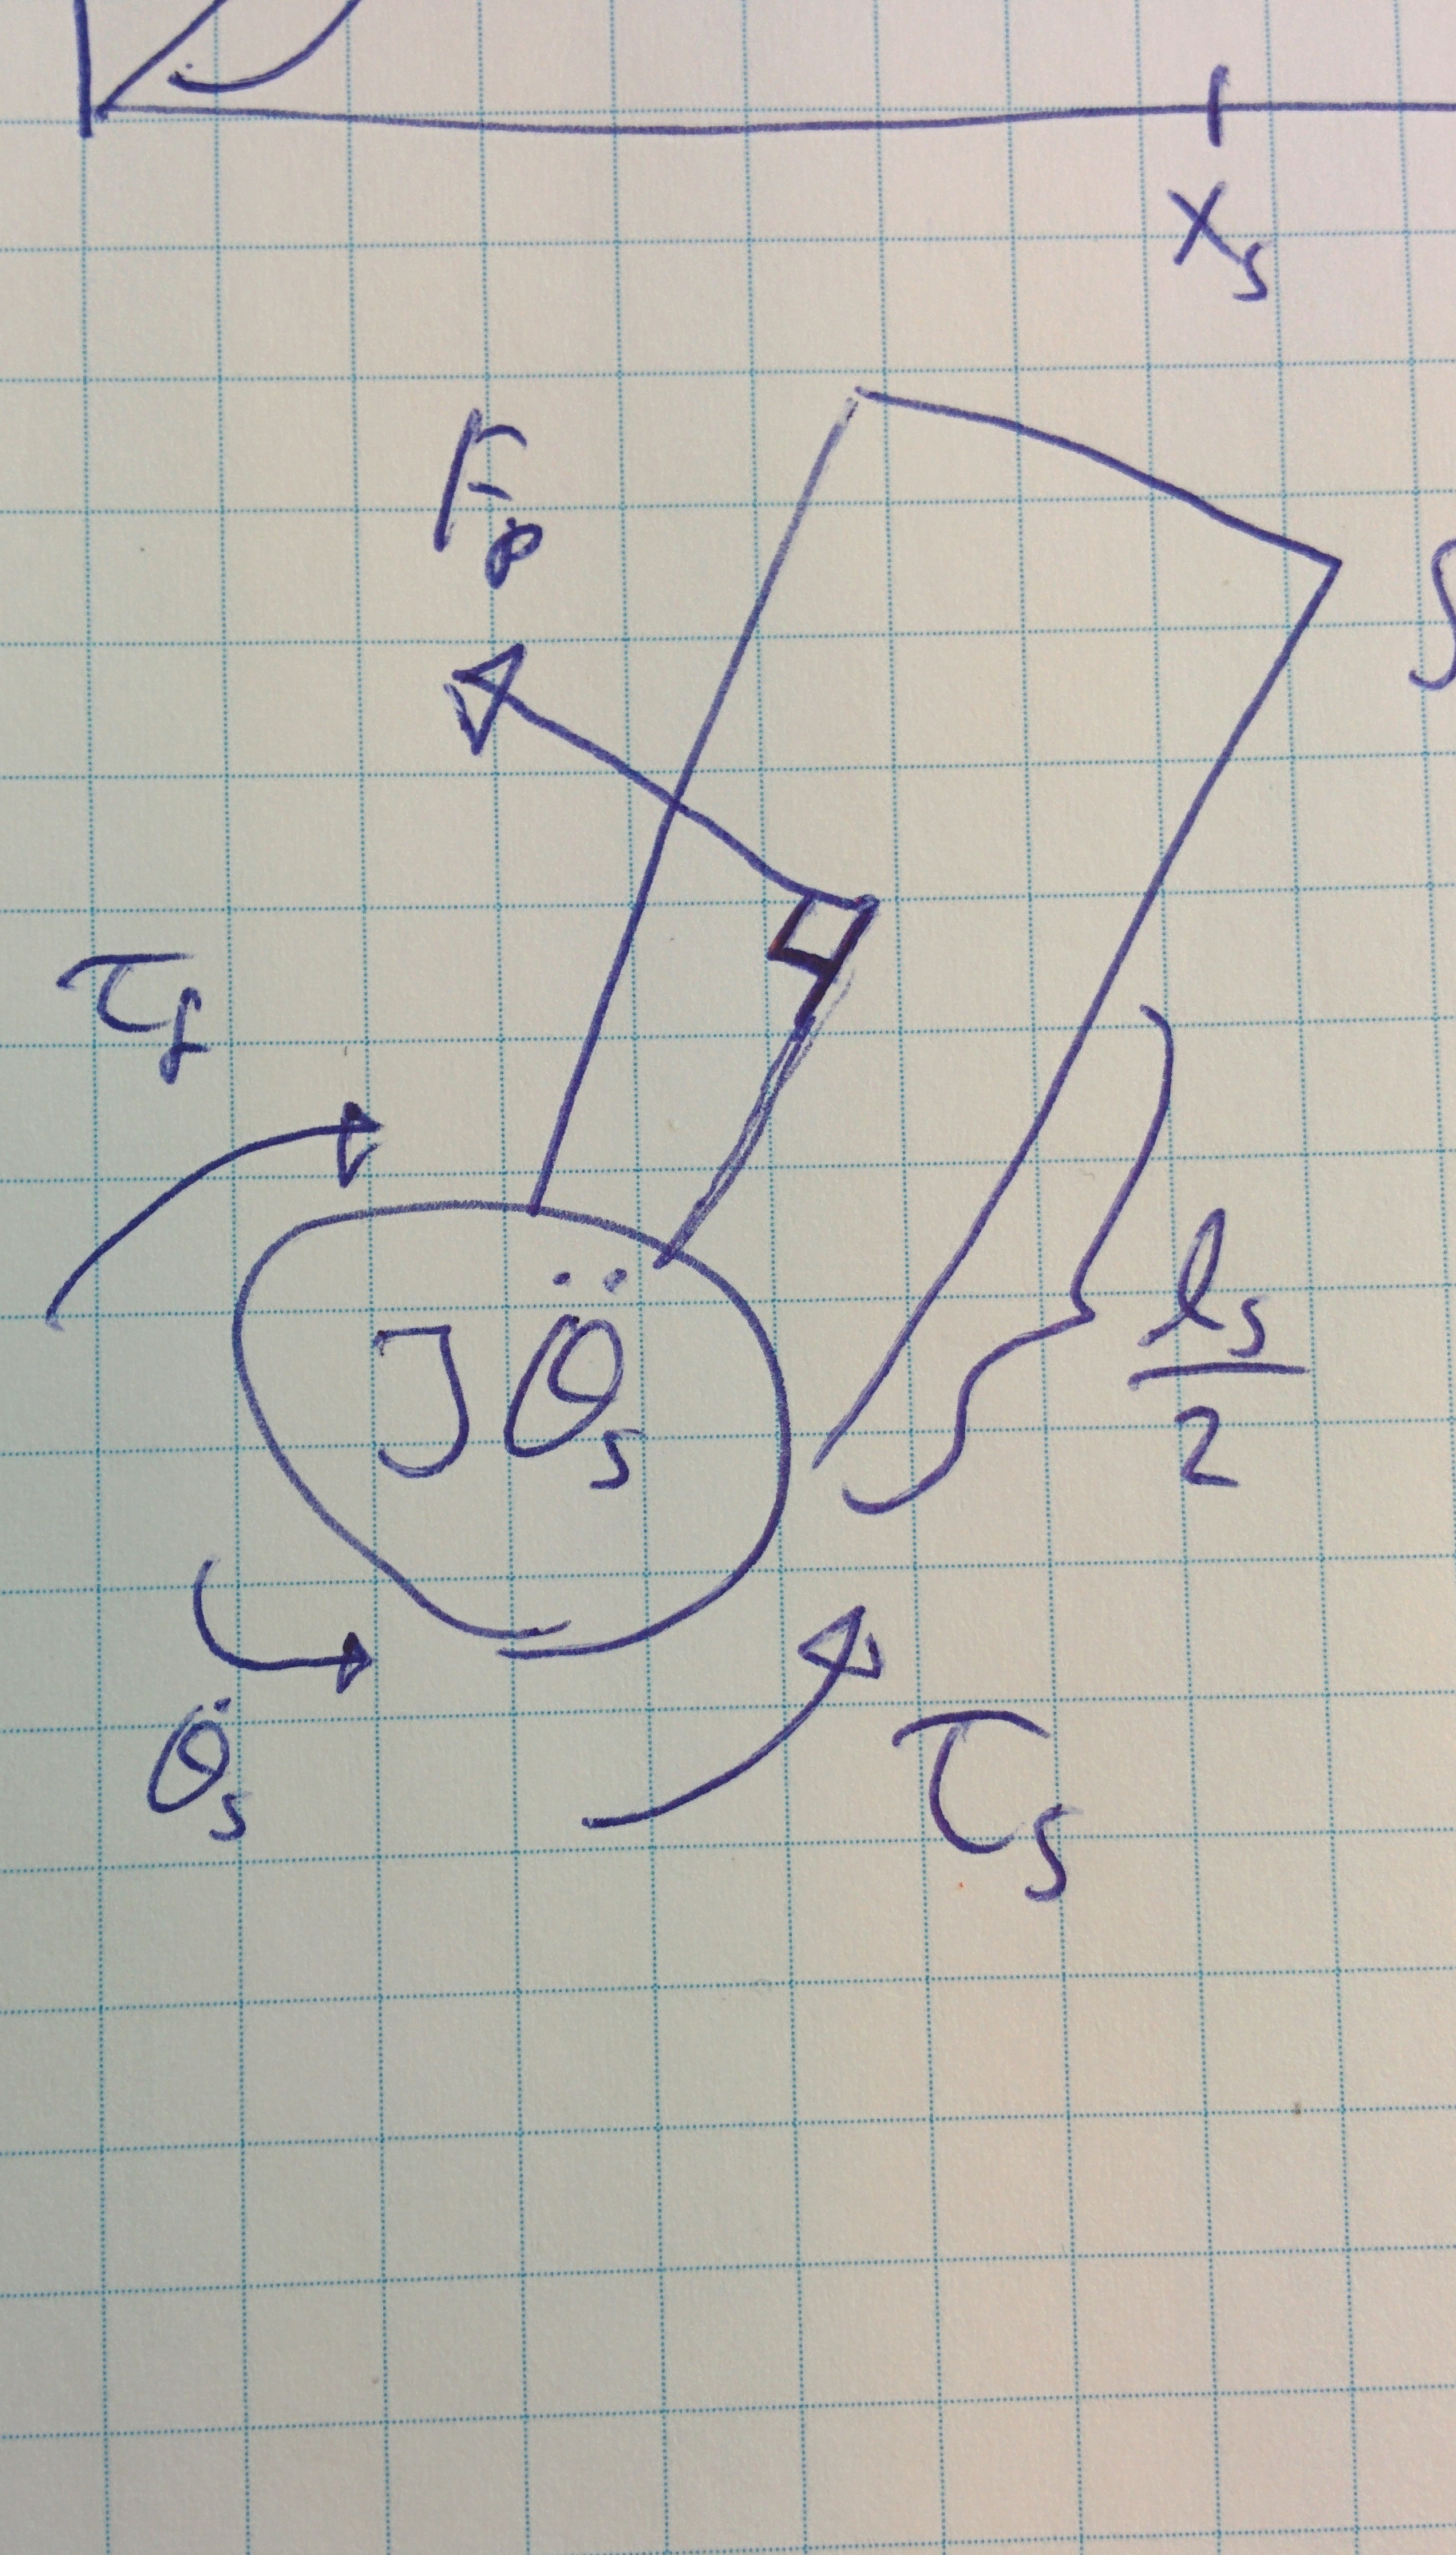 x_s
F_p
τ_f
Jθ̈_s
l_s/2
θ̈_s
τ_s